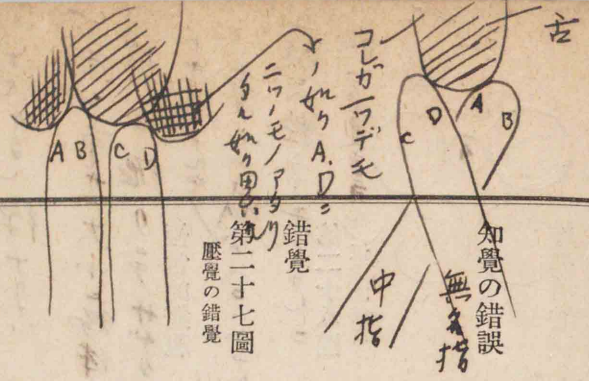 知覺の錯誤
舌
D
A
C
B
無名指
中指
コレガ一ツデモ
ノ如ク A.D ニ
二ツノモノアタリ
タル如ク思ハル
錯覺
第二十七圖
壓覺の錯覺
A B C D